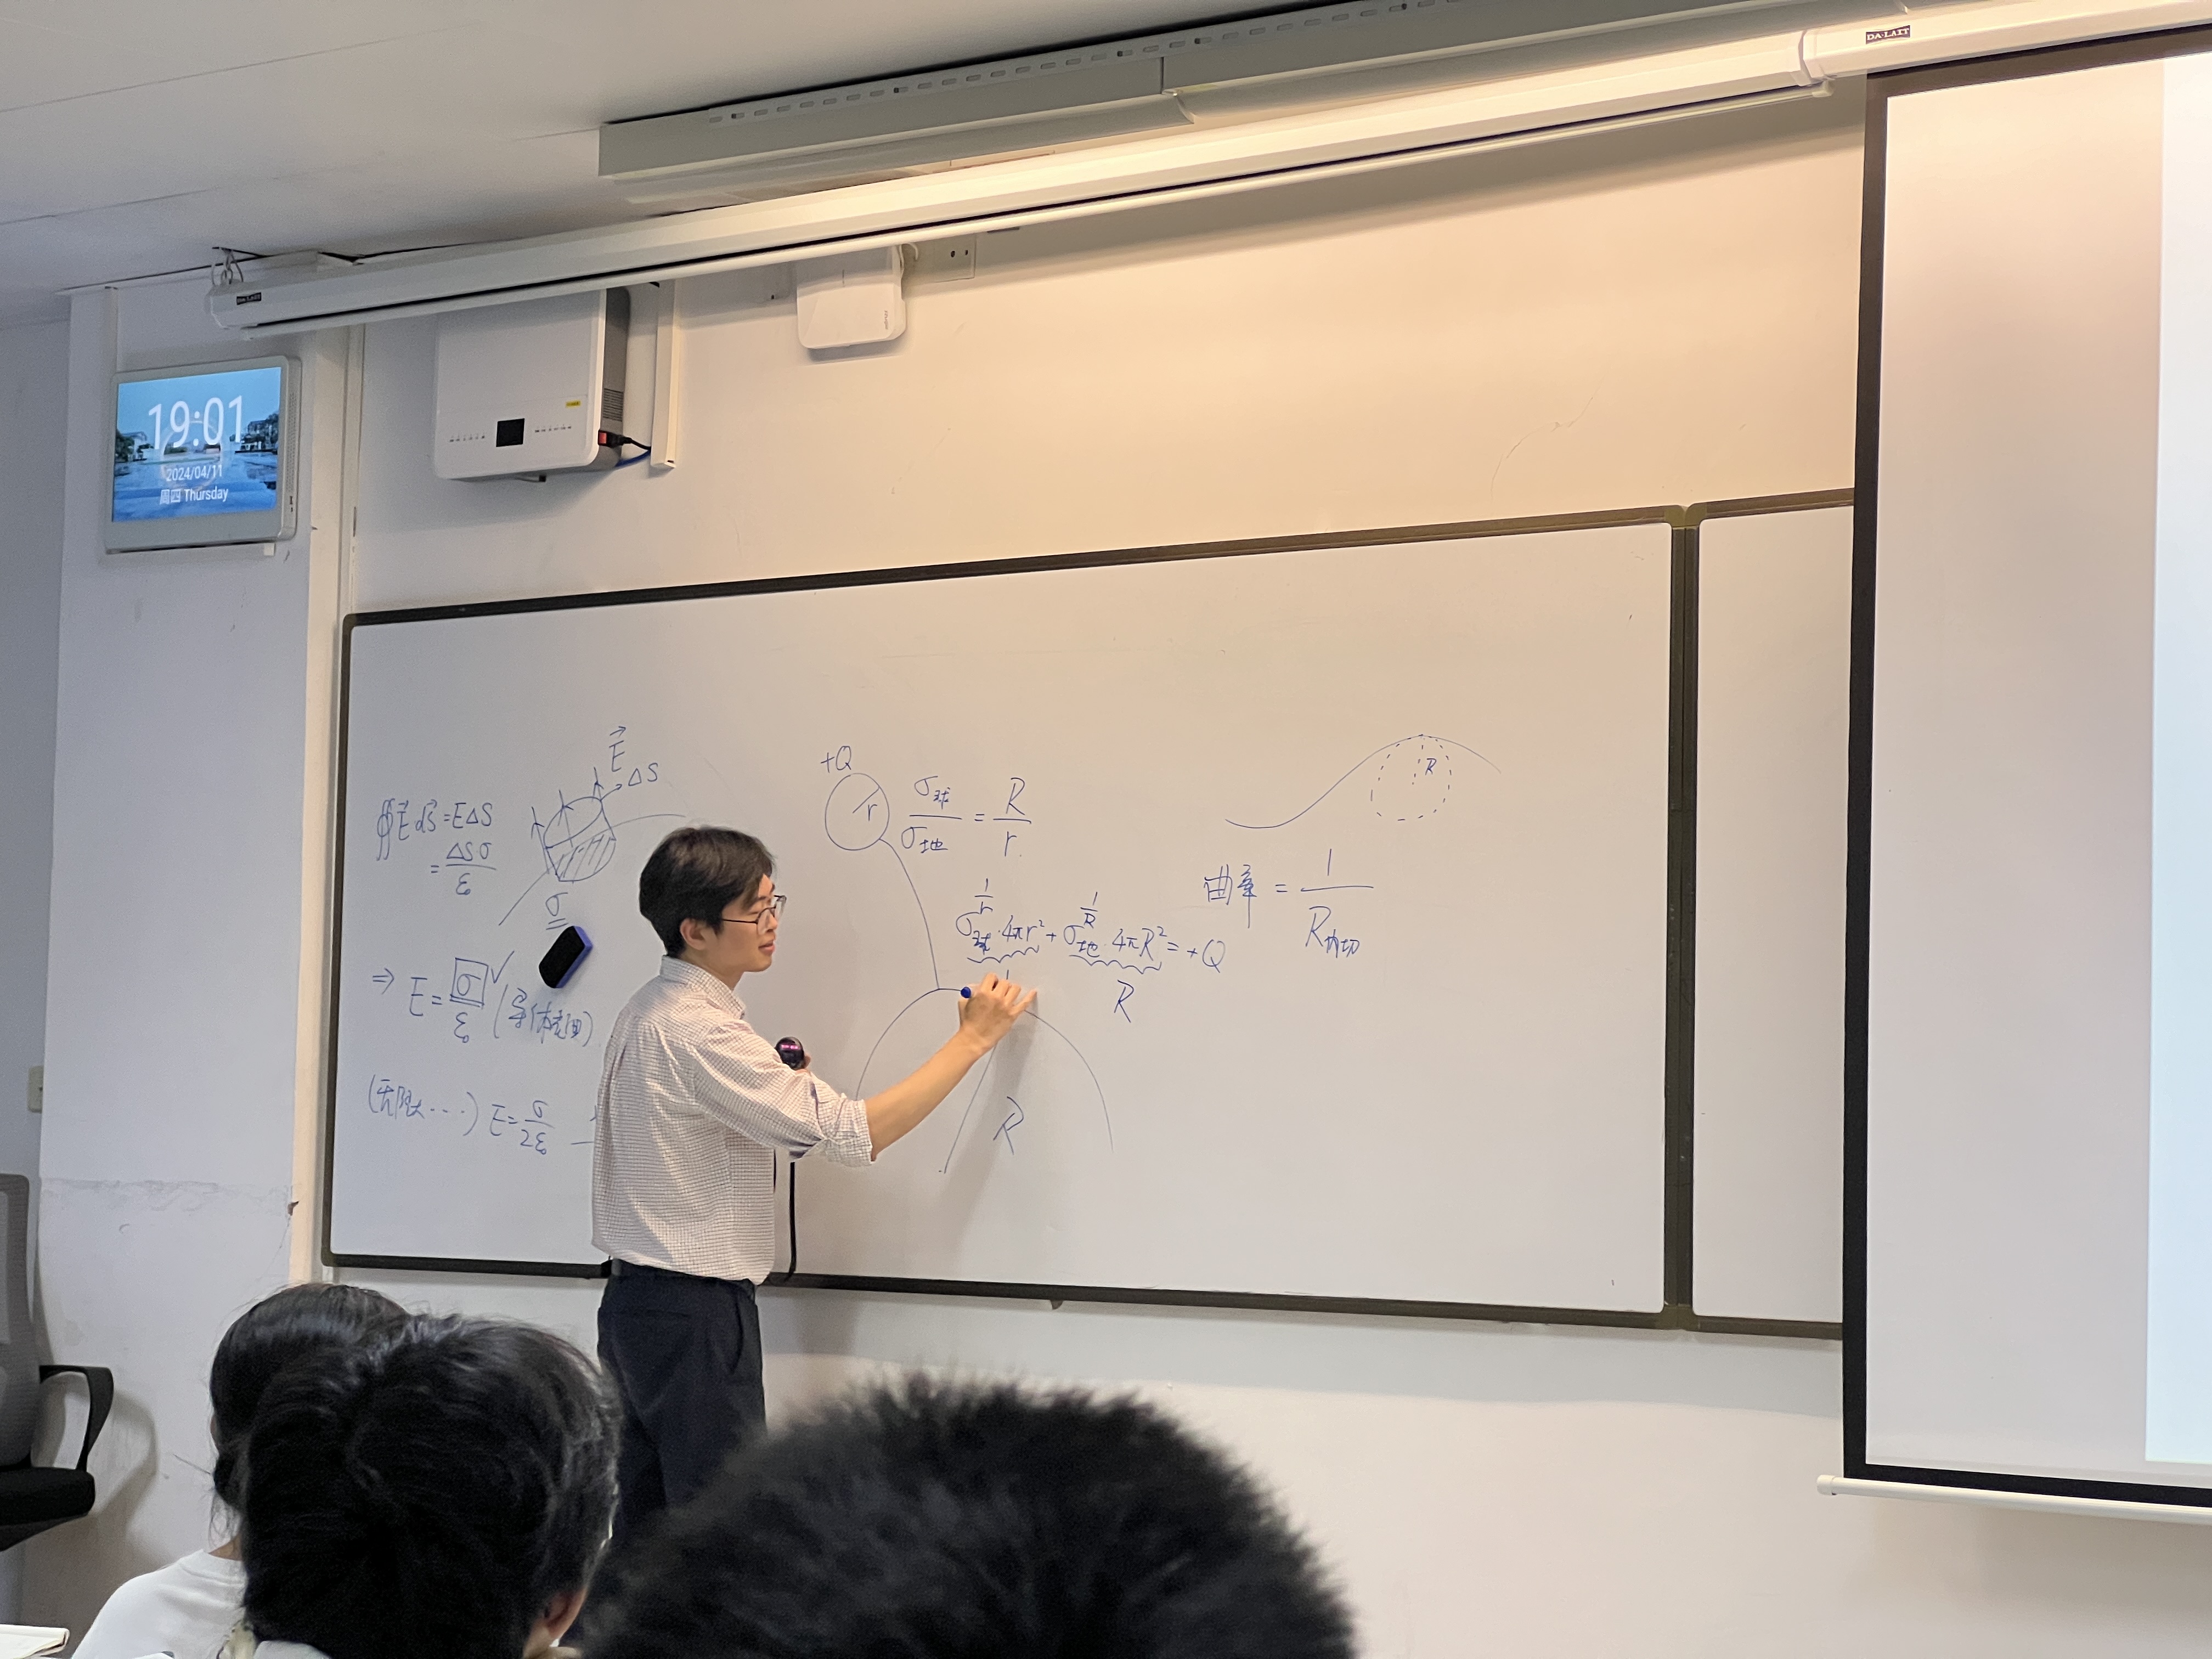 DA-LAIT
DA-LAIT
19:01
2024/04/11
周四 Thursday
E⃗
ΔS
∯E⃗·dS⃗=EΔS
=ΔSσ/ε
σ
⇒ E=σ/ε₀ ✓(导体表面)
(无限大···) E=σ/2ε₀
+Q
r
σ球/σ地 = R/r
1/r 1/R
σ球·4πr²+σ地·4πR²=+Q
R
R
R
曲率 = 1/R内切